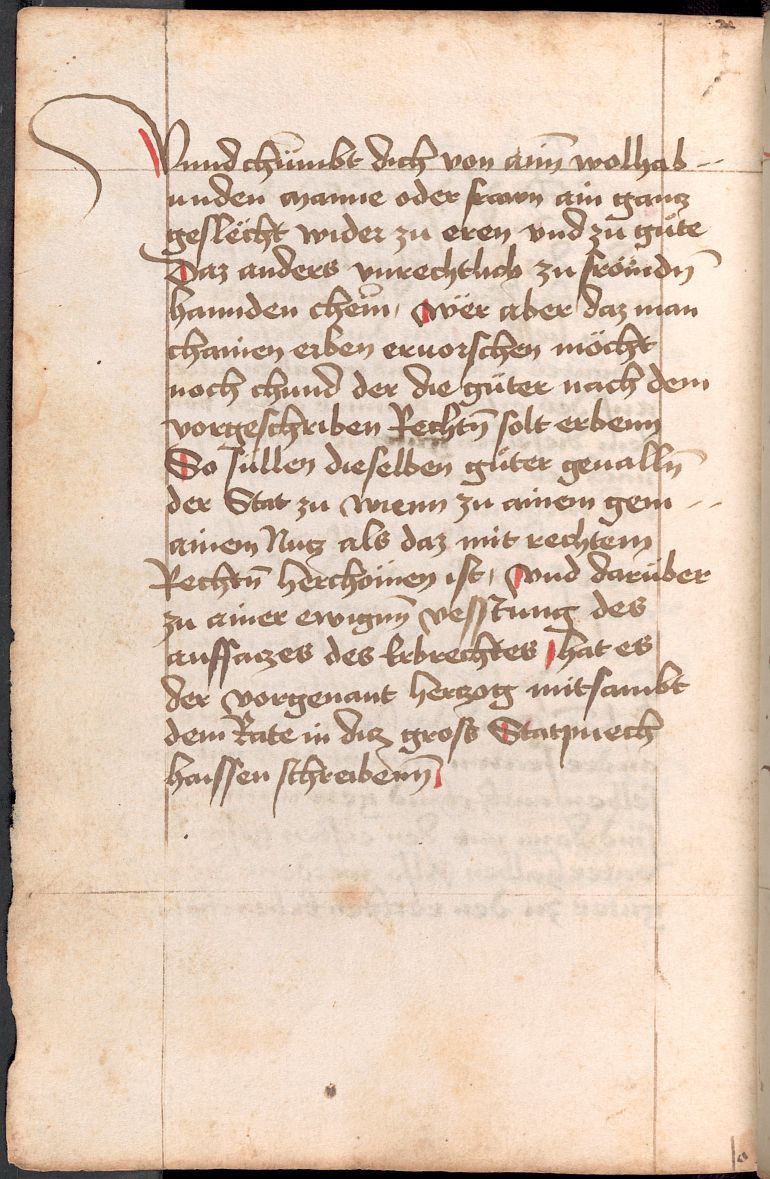 Vnnd chümbt dich von ainē wolhab--
unden manne oder frawn ain gancz
geslëcht wider zu eren vnd zu güte
Daz anders vnrechtlich zu fröimdn̄
hannden chëm, wër aber daz man
chainen erben eruorschen möcht
noch chund der die güter nach dem
vorgeschriben Rechtn̄ solt erbenn
So sullen dieselben güter geualln̄
der Stat zu wienn zu ainem gem--
ainem Nucz als daz mit rechtem
Rechtn̄ herchömen ist, vnd darüber
zu ainer ewigun̄ vesstung des
auffsaczes des Erbrechtes hat es
der vorgenant herczog mitsambt
dem Rate in dicz gross Statpuech
haissen schreibenn̄